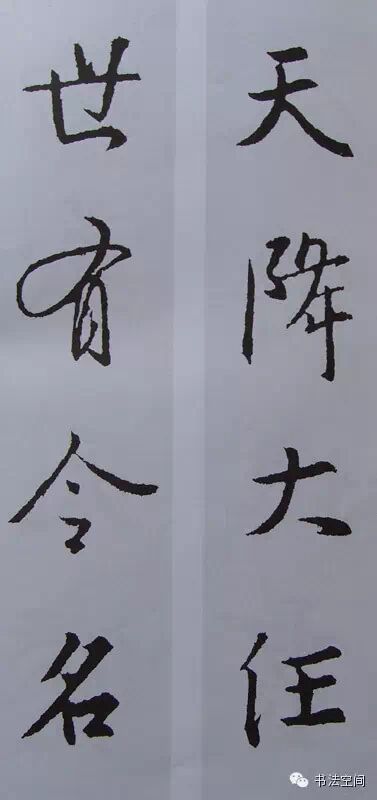 天降大任
世有令名
书法空间